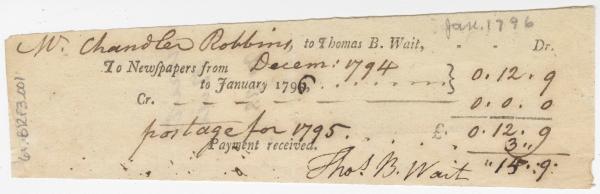 Jan. 1796
Mr. Chandler Robbins, to Thomas B. Wait, Dr.
To Newſpapers from Decem: 1794
to January 1796, } 0.12.9
Cr. 0.0.0
postage for 1795. £. 0.12.9
3„
Payment received. „15.9.
Thos. B. Wait